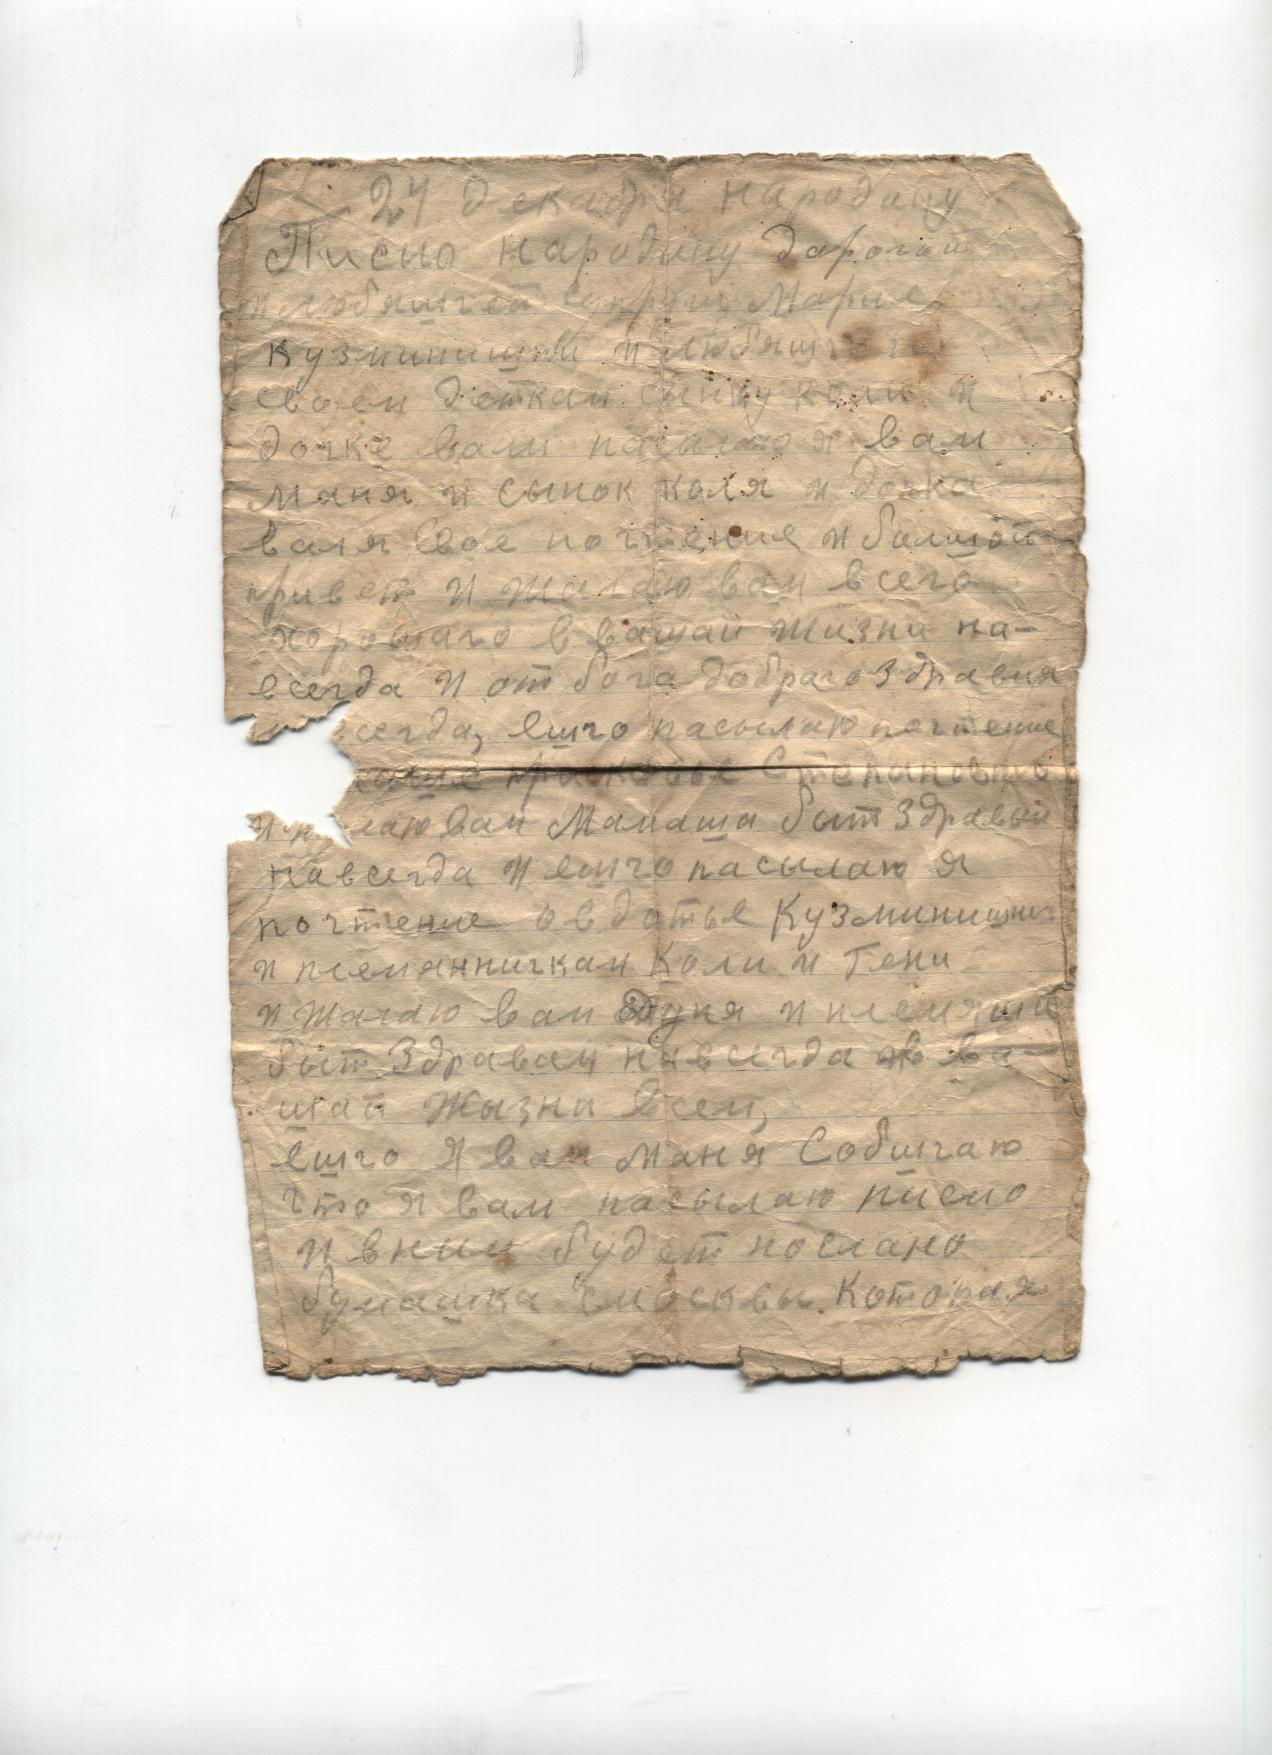 24 декабря народину
Писмо народину дарогой
и любяшчей супруги Марие
Кузминишни и любяшчего
своем деткам сынку коли и
дочке вали пасылаю я вам
Маня и сынок коля и дочка
валя свое почтение и болшой
привет и жалаю вам всего
хорошаго в вашай жизни на-
всегда и от бога добраго здравия
сегда, ешчо пасылаю почтение
Степановне
лаю вам Мамаша быт здравый
навсегда и ешчо пасылаю я
почтение овдотье Кузминишни
и племянничкам Коли и Гени
и жалаю вам Дуня и племяши
быт здравам навсегда в ва-
шай жызна всем,
ешчо я вам маня собшчаю
что я вам пасылаю писмо
и вним будет послано
бумашка смосквы которая